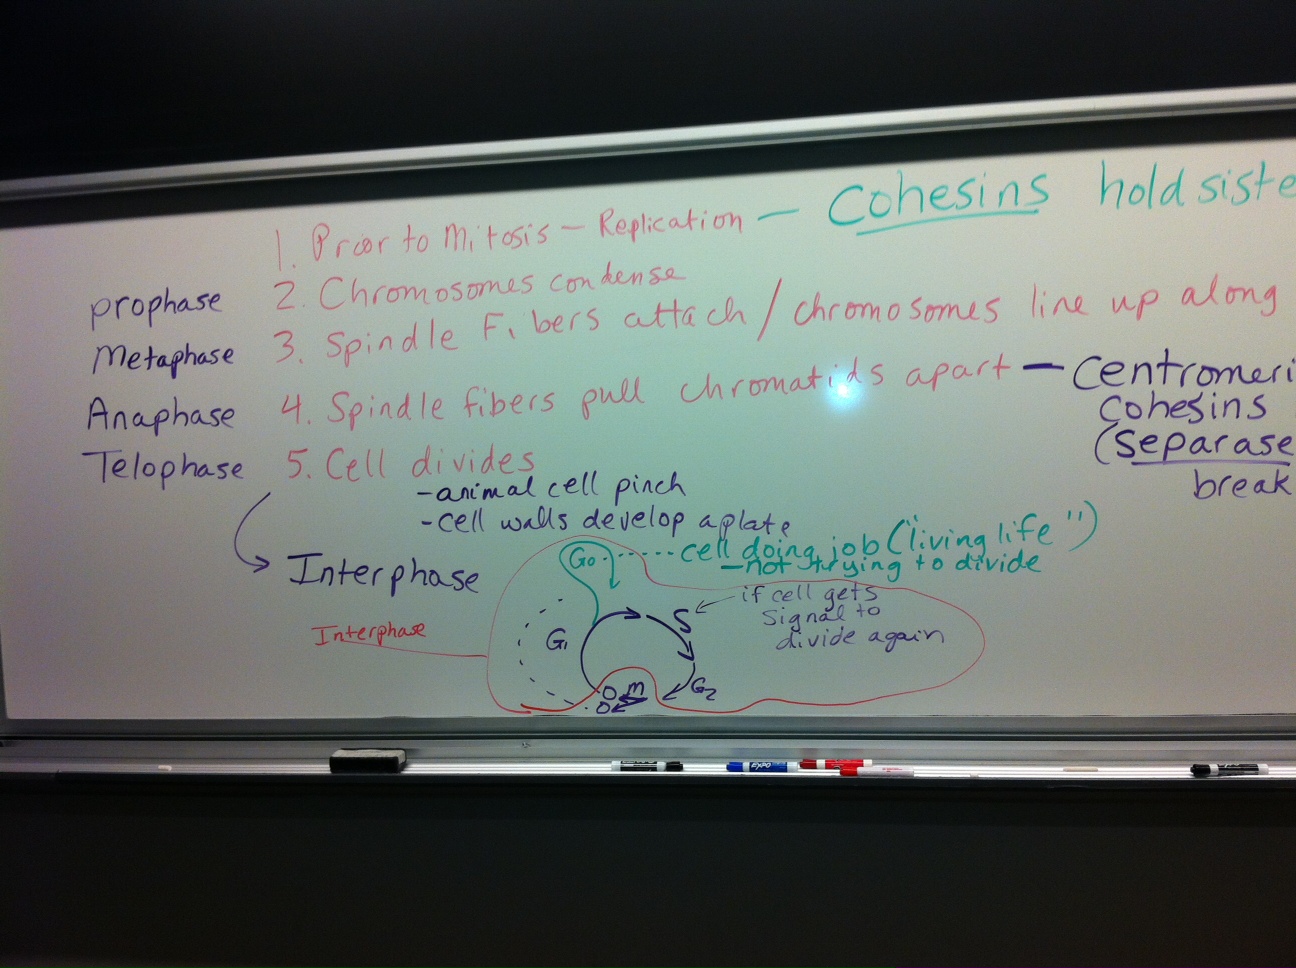 1. Prior to Mitosis – Replication — Cohesins hold siste
prophase 2. Chromosomes condense
Metaphase 3. Spindle Fibers attach / chromosomes line up along
Anaphase 4. Spindle fibers pull chromatids apart — Centromeri
cohesins
(separase
break
Telophase 5. Cell divides
-animal cell pinch
-cell walls develop a plate
Interphase
G0 ...... cell doing job ("living life")
-not trying to divide
Interphase
G1
S
if cell gets
signal to
divide again
G2
M
EXPO